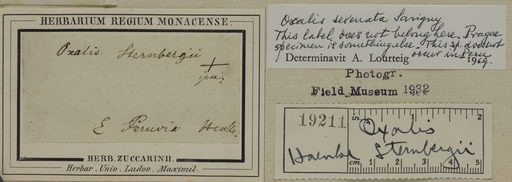 HERBARIUM REGIUM MONACENSE.
Oxalis Sternbergii
E Peruvia
HERB. ZUCCARINII.
Herbar. Univ. Ludov. Maximil.
Oxalis Savigny
This label does not belong here. Prague
specimen is something else. This sp. does not
occur in Peru
Determinavit A. Lourteig 1969.
Photogr.
Field Museum 1932
19211
Oxalis
Haenke Sternbergii
in 1 2
cm 1 2 3 4 5